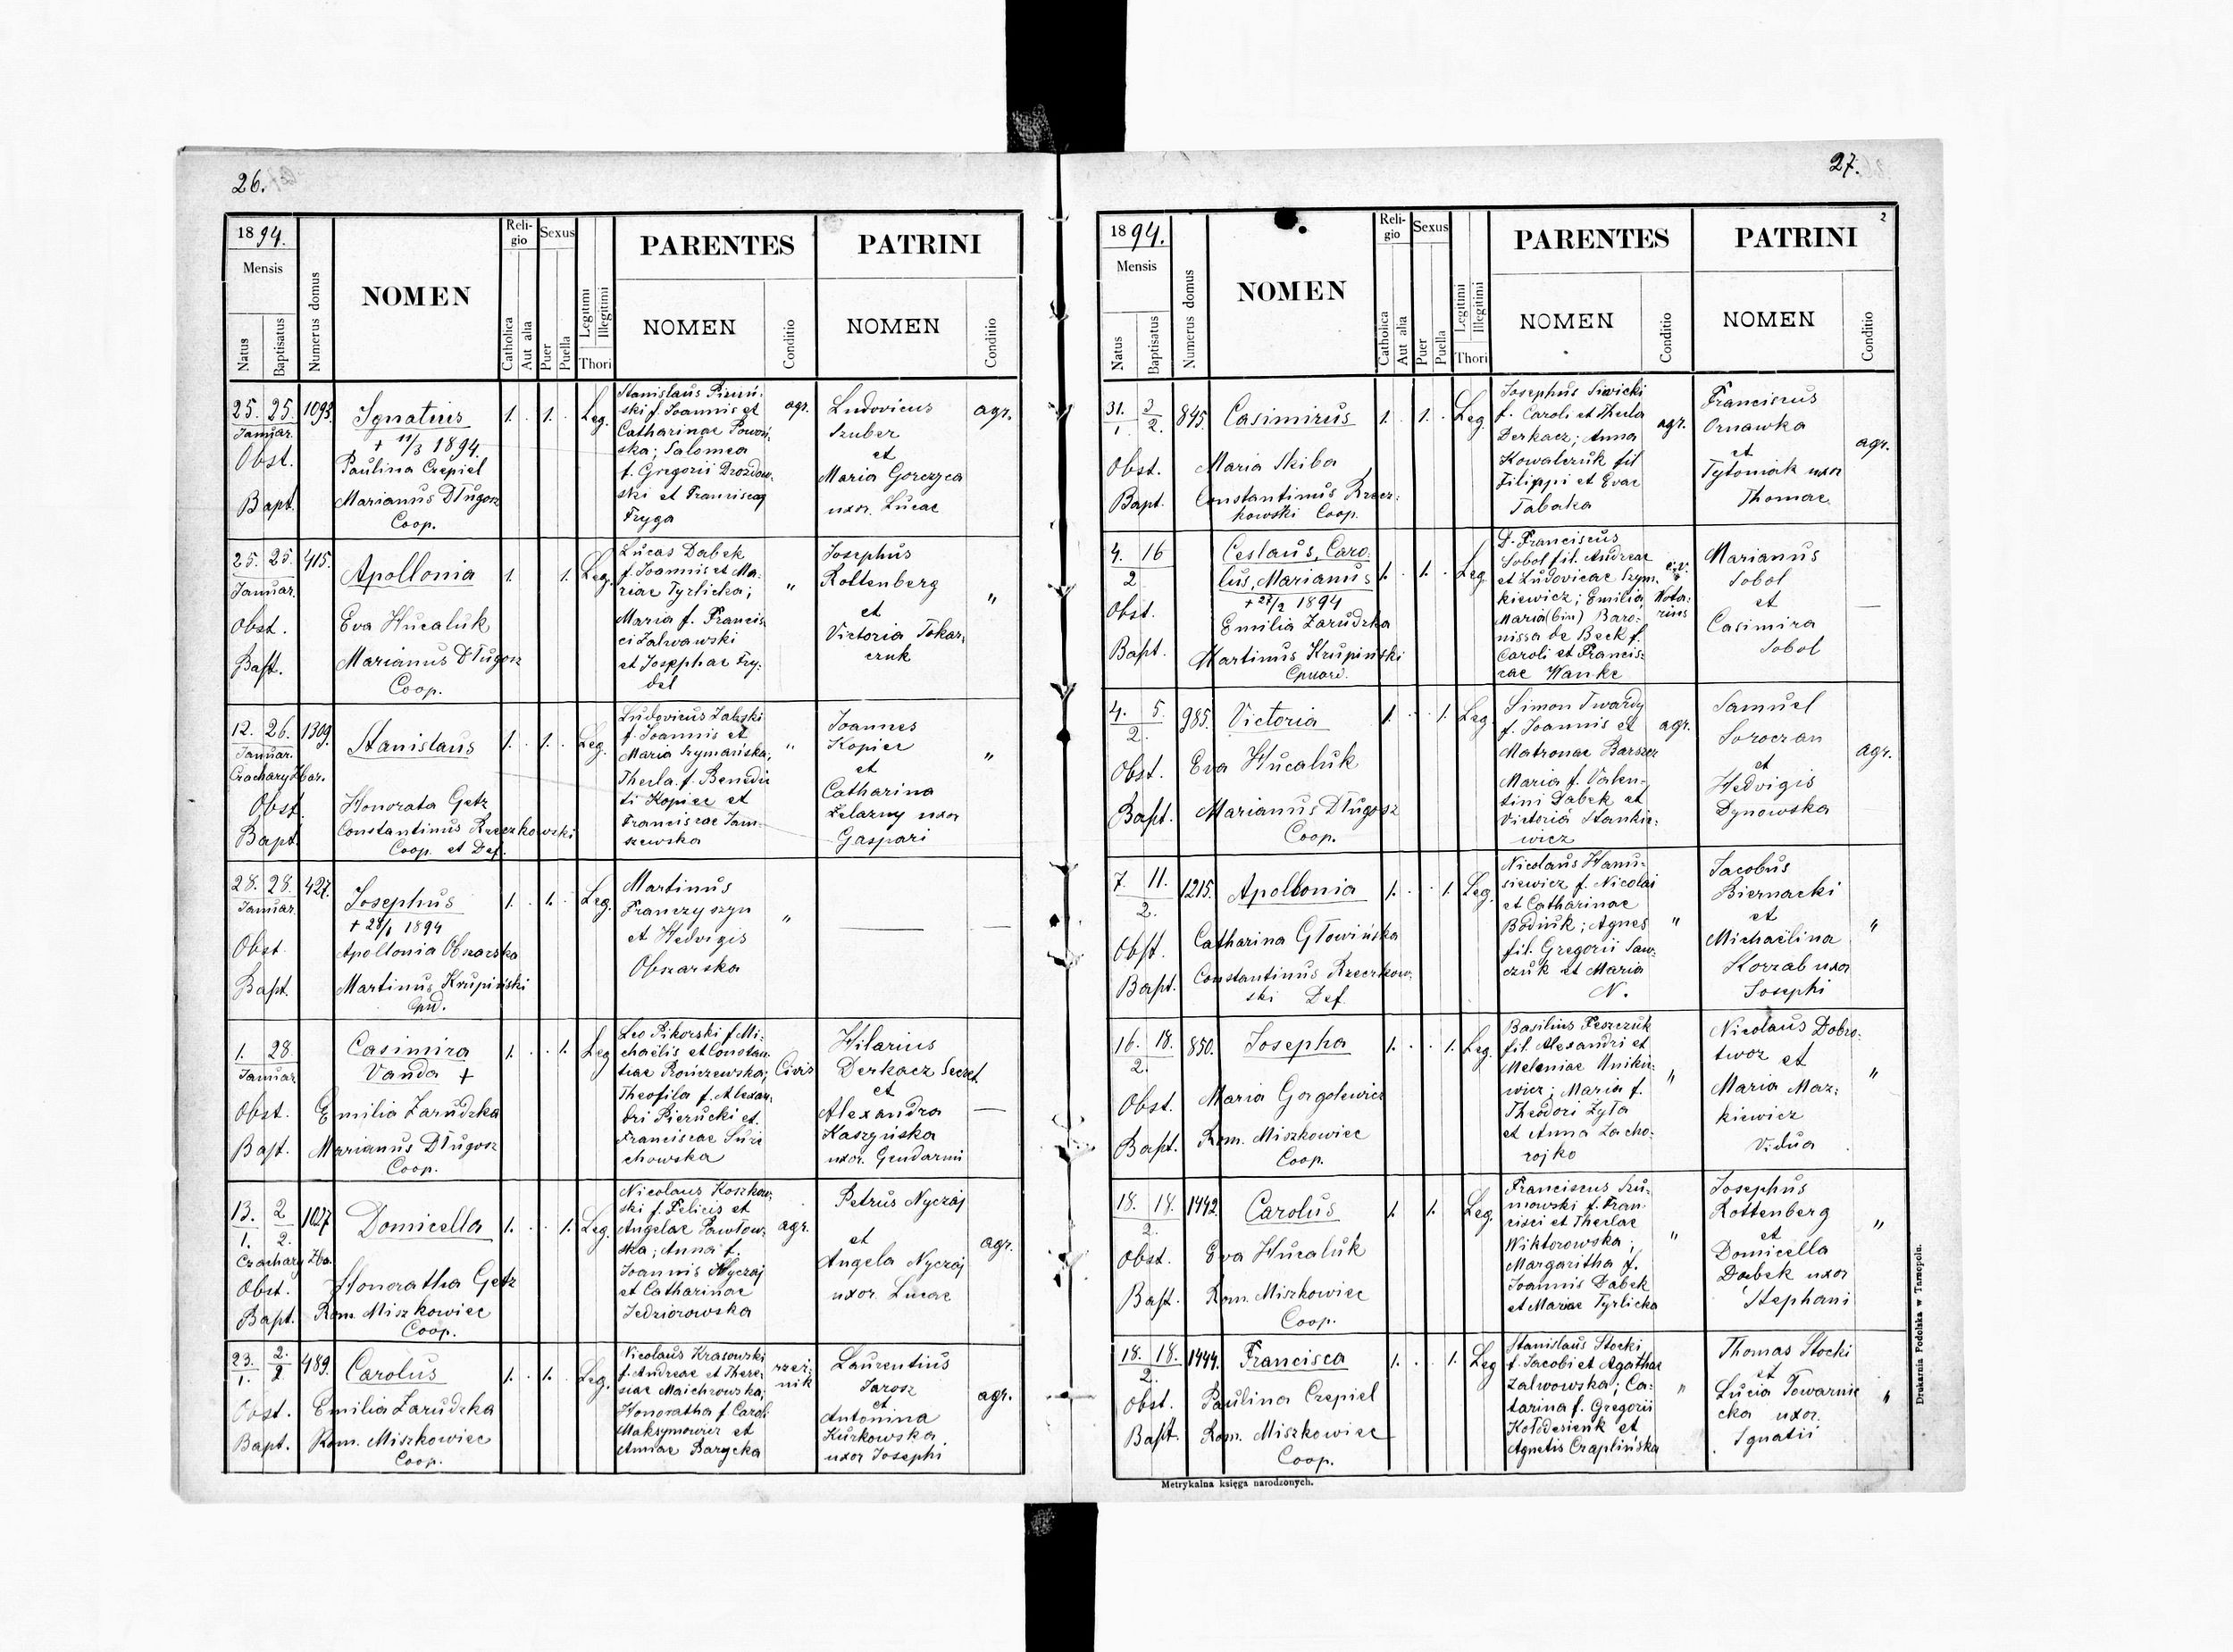 26.
1894.
Mensis
Natus
Baptisatus
Numerus domus
NOMEN
Religio
Catholica
Aut alia
Sexus
Puer
Puella
Legitimi
Illegitimi
Thori
PARENTES
NOMEN
Conditio
PATRINI
NOMEN
Conditio
25. 25. 1093.
Januar.
Ignatius
+ 11/3 1894.
1. 1. Leg.
Obst. Paulina Czepiel
Bapt. Marianus Długosz
Coop.
Stanislaus
ski f. Joannis et
Catharinae
ska; Salomea
f. Gregorii Drozdow-
ski et Franciscae
Fryga
agr.
Ludovicus
Szuber
et
Maria Gorczyca
uxor. Lucae
agr.
25. 25. 415.
Januar.
Apollonia
1. 1. Leg.
Obst. Eva Hucaluk
Bapt. Marianus Długosz
Coop.
Lucas Dabek
f. Joannis et Ma-
riae Tyrlicka;
Maria f. Francis-
ci Zalwawski
et Josephae Fry-
del
"
Josephus
Rottenberg
et
Victoria Tokar-
czuk
"
12. 26. 1309.
Januar.
Czachary Zbar.
Stanislaus
1. 1. Leg.
Obst. Honorata Getz
Bapt. Constantinus Rzeczkowski
Coop. et Def.
Ludovicus Zaleski
f. Joannis et
Maria Szymańska;
Thecla f. Benedic
ti Kopiec et
Franciscae Jam-
szewska
"
Joannes
Kopiec
et
Catharina
Zelazny uxor
Gaspari
"
28. 28. 427.
Januar.
Josephus
+ 28/1 1894
1. 1. Leg.
Obst. Apollonia Obszarska
Bapt. Martinus Krupiński
Martinus
Franczyszyn
et Hedvigis
Obszarska
"
1. 28.
Januar.
Casimira
Vanda +
1. 1. Leg
Obst. Emilia Zarudzka
Bapt. Marianus Długosz
Coop.
Leo Pikorski f. Mi-
chaëlis et Constan-
tiae Rończewska;
Theofila f. Alexan-
dri Pierucki et
Franciscae
chowska
Civis
Hilarius
Derkacz Secret.
et
Alexandra
Kaszyńska
uxor. Gendarmi
13. 2 1027
1. 2.
Czachary Zba.
Domicella
1. 1. Leg.
Obst. Honoratha Getz
Bapt. Rom. Miszkowiec
Coop.
Nicolaus Koszkow-
ski f. Felicis et
Angelae Pawłow-
ska; Anna f.
Joannis Nyczaj
et Catharinae
Jedziorowska
agr.
Petrus Nyczaj
et
Angela Nyczaj
uxor. Lucae
agr.
23. 2. 489.
1. 2
Carolus
1. 1. Leg.
Obst. Emilia Zarudzka
Bapt. Rom. Miszkowiec
Coop.
Nicolaus Krasowski
f. Andreae et There-
siae Maichrowska;
Honoratha f. Caroli
Maksymowicz et
Annae Barycka
rzeź-
nik
Laurentius
Jarosz
et
Antonina
Kurkowska
uxor Josephi
agr.
27.
2
1894.
Mensis
Natus
Baptisatus
Numerus domus
NOMEN
Religio
Catholica
Aut alia
Sexus
Puer
Puella
Legitimi
Illegitimi
Thori
PARENTES
NOMEN
Conditio
PATRINI
NOMEN
Conditio
31. 3 845.
1. 2.
Casimirus
1. 1. Leg.
Obst. Maria Skiba
Bapt. Constantinus Rzecz-
kowski Coop.
Josephus Siwicki
f. Caroli et Thecla
Derkacz; Anna
Kowalczuk fil
Filippi et Evae
Tabaka
agr.
Franciscus
Ornawka
et
Tytoniak uxor
Thomae
agr.
4. 16
2
Ceslaus, Caro-
lus, Marianus
+ 27/2 1894
1. 1. Leg
Obst. Emilia Zarudzka
Bapt. Martinus Krupiński
D. Franciscus
Sobol fil. Andreae
et Ludovicae Szym-
kiewicz; Emilia
Maria (bin) Baro-
nissa de Beck f.
Caroli et Francis-
cae Hanke
Nota-
rius
Marianus
Sobol
et
Casimira
Sobol
4. 5. 985.
2.
Victoria
1. 1. Leg.
Obst. Eva Hucaluk
Bapt. Marianus Długosz
Coop.
Simon Twardy
f. Joannis et
Matronae Barszcz
Maria f. Valen-
tini Dabek et
Victoria Stankie-
wicz
agr.
Samuel
Soroczan
et
Hedvigis
Dynowska
agr.
7. 11. 1215.
2.
Apollonia
1. 1. Leg.
Obst. Catharina Głowińska
Bapt. Constantinus Rzeczkow-
ski Def.
Nicolaus Hanu-
siewicz f. Nicolai
et Catharinae
Bodnuk; Agnes
fil. Gregorii Saw-
czuk et Maria
N.
"
Jacobus
Biernacki
et
Michaëlina
Korzab uxor
Josephi
"
16. 18. 850.
2.
Josepha
1. 1. Leg.
Obst. Maria Gorgolewicz
Bapt. Rom. Miszkowiec
Coop.
Basilius Peszczuk
fil. Alexandri et
Melaniae
wicz; Maria f.
Theodori Zyła
et Anna Zacho-
rojko
"
Nicolaus Dobro-
twor et
Maria Maz-
kiewicz
Vidua
"
18. 18. 1442.
2.
Carolus
1. 1. Leg.
Obst. Eva Hucaluk
Bapt. Rom. Miszkowiec
Coop.
Franciscus Szu-
mowski f. Fran-
cisci et Theclae
Wiktorowska;
Margaritha f.
Joannis Dabek
et Mariae Tyrlicka
"
Josephus
Rottenberg
et
Domicella
Dabek uxor
Stephani
"
18. 18. 1444.
2.
Francisca
1. 1. Leg
Obst. Paulina Czepiel
Bapt. Rom. Miszkowiec
Coop.
Stanislaus Stocki
f. Jacobi et Agathae
Zalwowska; Ca-
tarina f. Gregorii
Kołodesienk et
Agnetis Czaplińska
"
Thomas Stocki
et
Lucia Towarnic
cka uxor.
Ignatii
"
Metrykalna księga narodzonych.
Drukarnia Podolska w Tarnopolu.